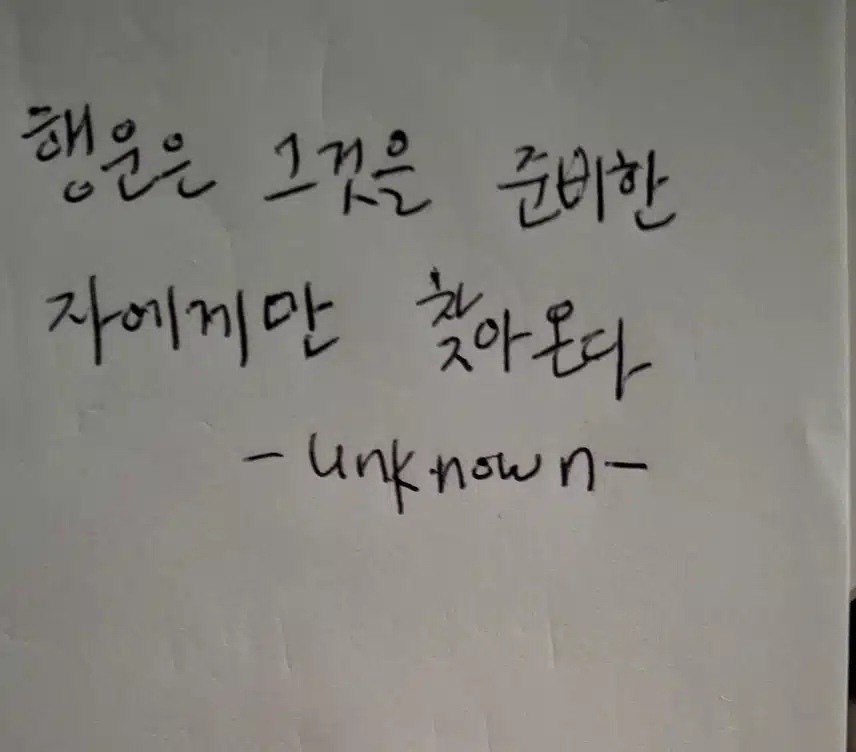 행운은 그것을 준비한
자에게만 찾아온다
- unknown -